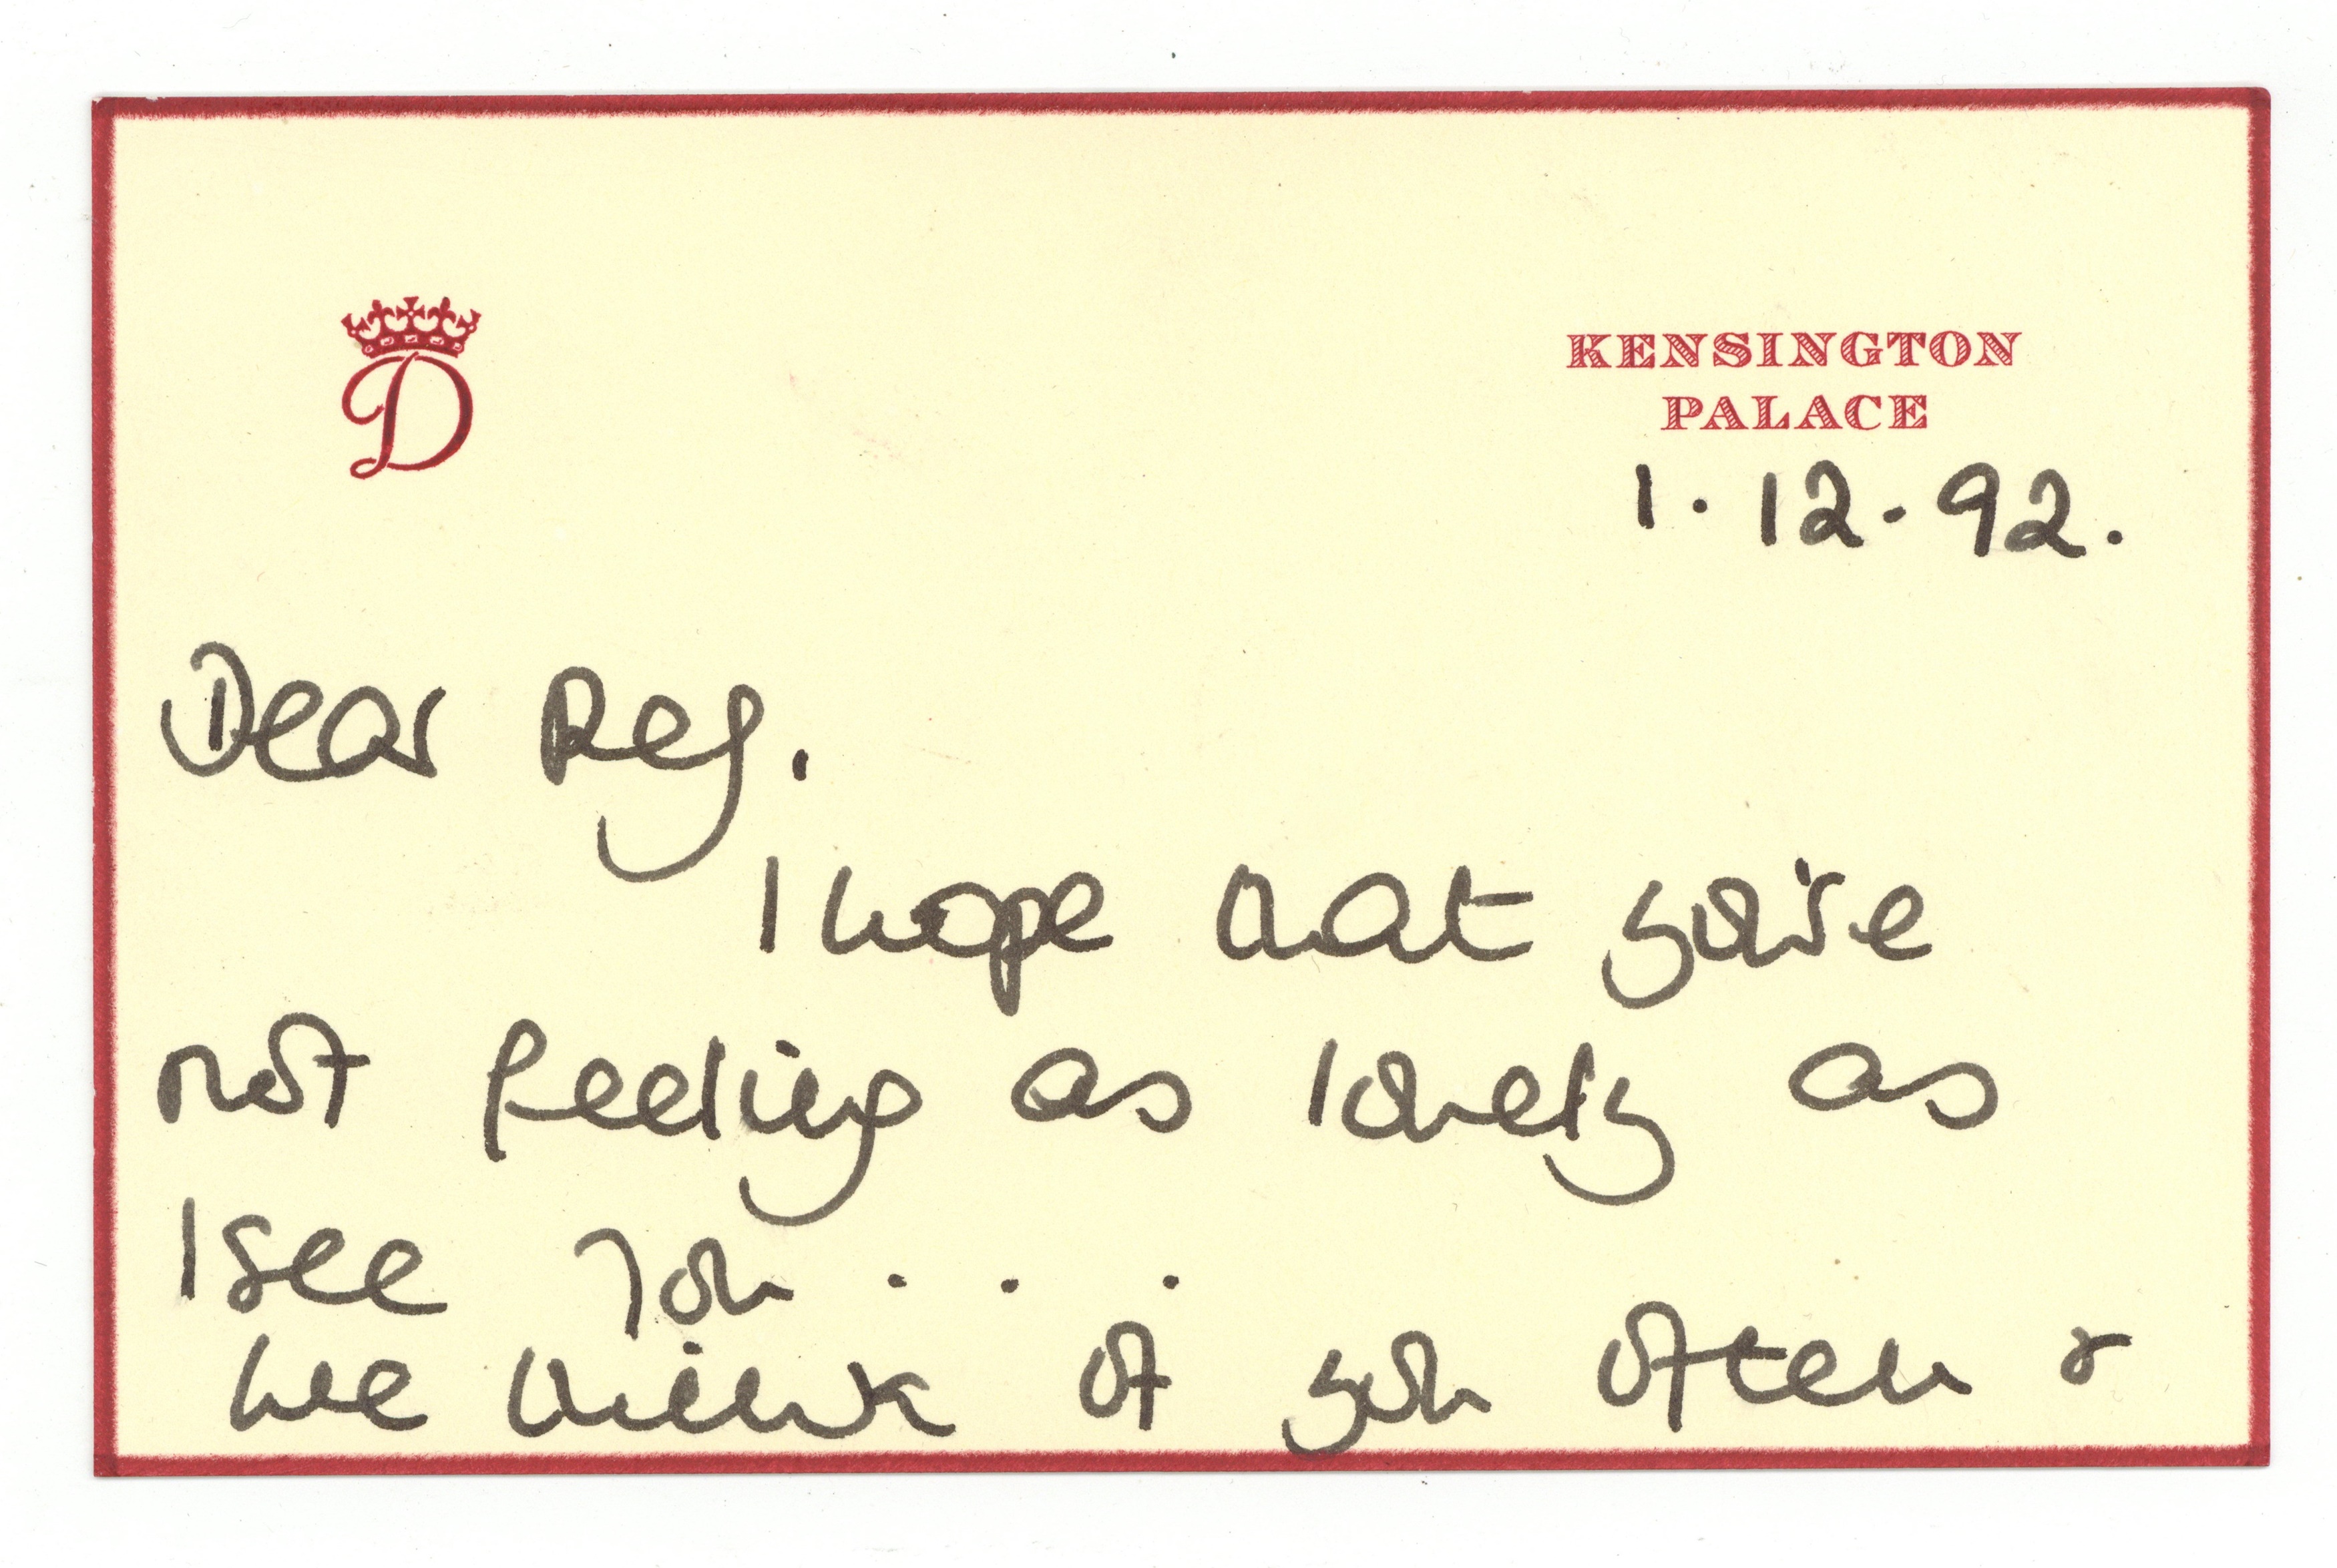 D
KENSINGTON
PALACE
1.12.92.
Dear Reg.
I hope that you're
not feeling as lonely as
I see you . . .
We think of you often &